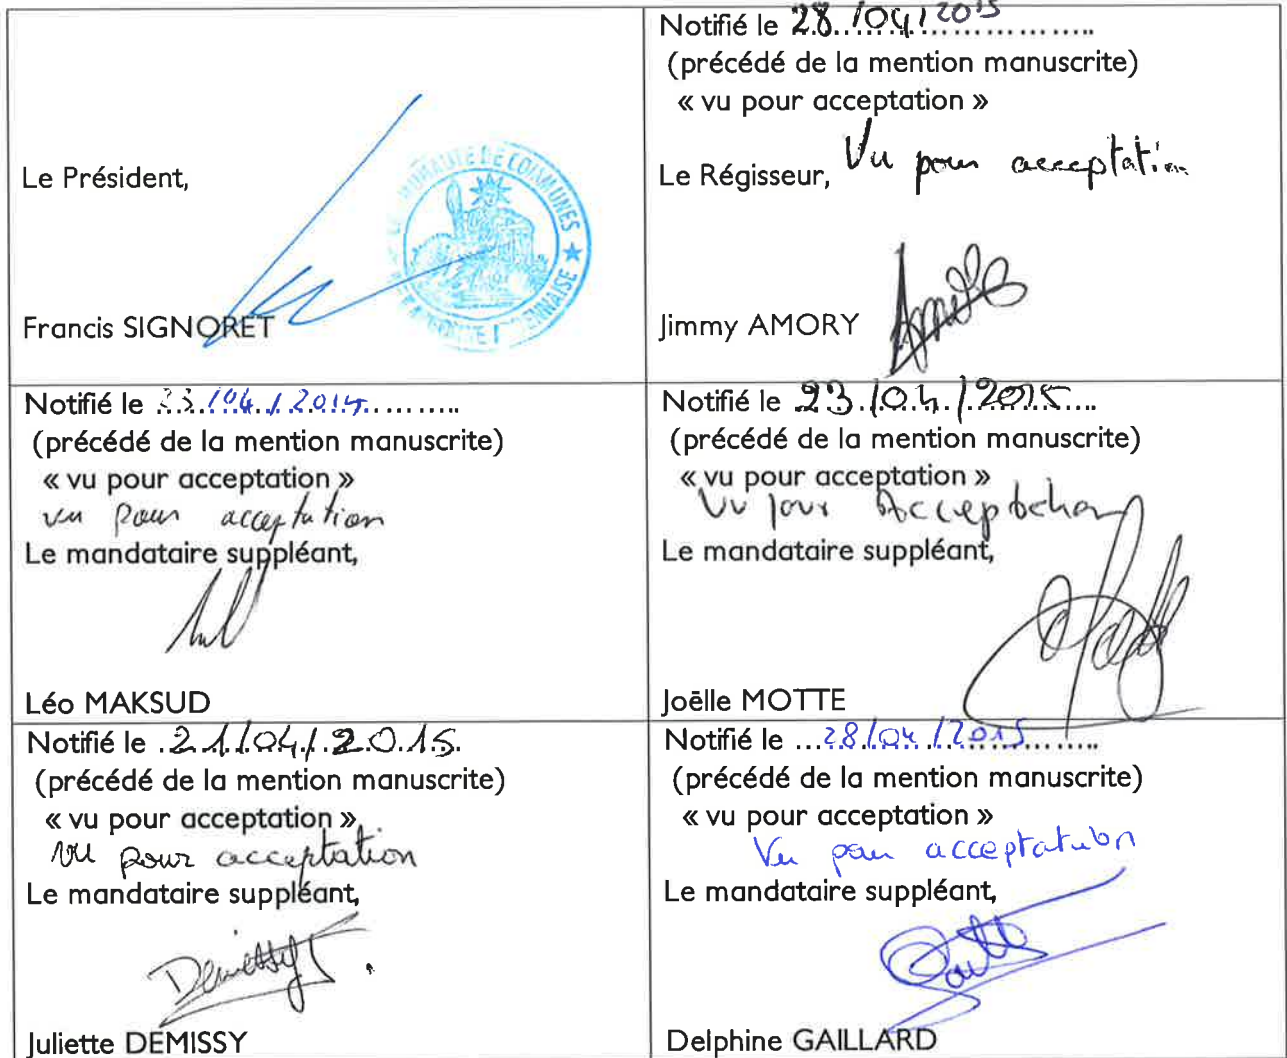 Le Président,
Francis SIGNORET
COMMUNES
Notifié le 28/04/2015
(précédé de la mention manuscrite)
« vu pour acceptation »
Le Régisseur, Vu pour acceptation
Jimmy AMORY
Notifié le 23/04/2015
(précédé de la mention manuscrite)
« vu pour acceptation »
vu pour acceptation
Le mandataire suppléant,
Léo MAKSUD
Notifié le 23/04/2015
(précédé de la mention manuscrite)
« vu pour acceptation »
Vu pour Acceptation
Le mandataire suppléant,
Joëlle MOTTE
Notifié le 21/04/2015
(précédé de la mention manuscrite)
« vu pour acceptation »
vu pour acceptation
Le mandataire suppléant,
Demissy
Juliette DEMISSY
Notifié le 28/04/2015
(précédé de la mention manuscrite)
« vu pour acceptation »
Vu pour acceptation
Le mandataire suppléant,
Delphine GAILLARD